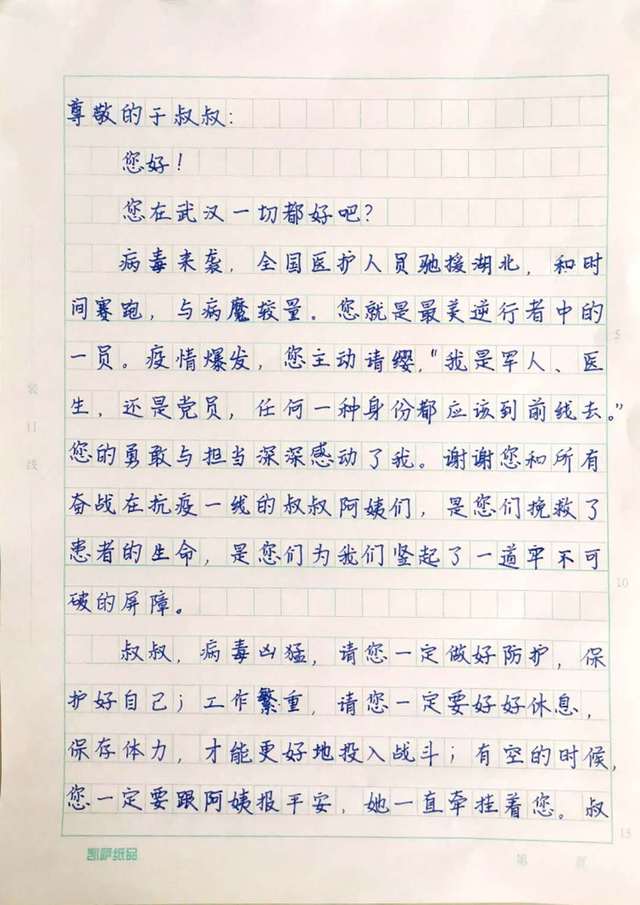 尊敬的于叔叔：
您好！
您在武汉一切都好吧？
病毒来袭，全国医护人员驰援湖北，和时
间赛跑，与病魔较量。您就是最美逆行者中的
5
一员。疫情爆发，您主动请缨，“我是军人、医
生，还是党员，任何一种身份都应该到前线去。”
您的勇敢与担当深深感动了我。谢谢您和所有
奋战在抗疫一线的叔叔阿姨们，是您们挽救了
患者的生命，是您们为我们竖起了一道牢不可
10
破的屏障。
叔叔，病毒凶猛，请您一定做好防护，保
护好自己；工作繁重，请您一定要好好休息，
保存体力，才能更好地投入战斗；有空的时候，
您一定要跟阿姨报平安，她一直牵挂着您。叔
15
装订线
凯萨纸品
第 页